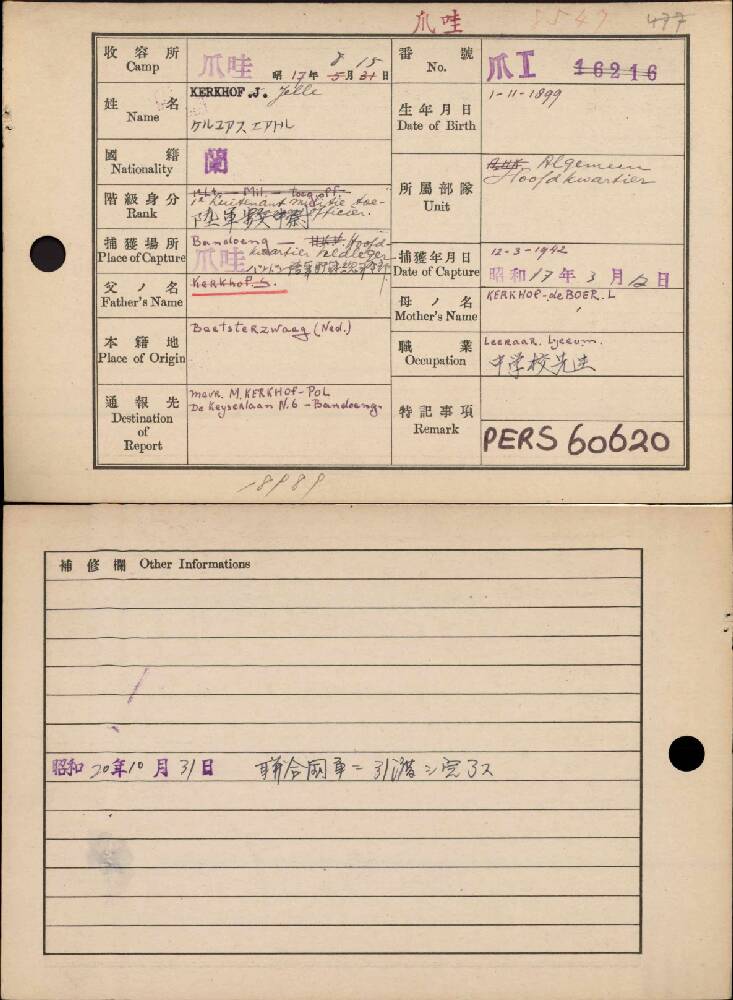 爪哇 5547 477
收容所 Camp 爪哇 昭17年 5月31日 8 15
番號 No. 爪工 16216
姓名 Name KERKHOF.J. Jelle
ケルユアス エアトル
生年月日 Date of Birth 1-11-1899
國籍 Nationality 蘭
階級身分 Rank 1e Luitenant militie toe-
officier.
陸軍
所屬部隊 Unit A.H.K. Algemeen
Hoofdkwartier
捕獲場所 Place of Capture Bandoeng - Hoofd-
kwartier veldleger
爪哇
捕獲年月日 Date of Capture 12-3-1942
昭和17年3月12日
父ノ名 Father's Name Kerkhof S.
母ノ名 Mother's Name KERKHOF-de BOER. L
本籍地 Place of Origin Beetsterzwaag (Ned.)
職業 Occupation Leeraar. Lyceum.
中学校先生
通報先 Destination of Report mevr. M. KERKHOF-POL
De Keyserlaan N.6 - Bandoeng.
特記事項 Remark PERS 60620
18989
補修欄 Other Informations
昭和20年10月31日 聯合國軍ニ引渡シ完了ス